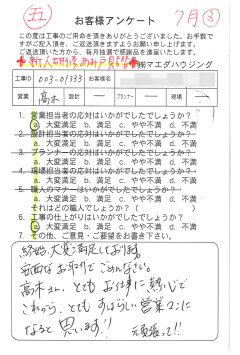 五
お客様アンケート
7月③
この度は工事のご用命を頂きありがとうございました。お手数で
すがご記入頂き、ご返送頂きますようお願い申し上げます。
ご返送頂いた方から、毎月抽選で感謝品を進呈いたします。
㈱マエダハウジング
工事ID 003-01333 お客様名
営業 高木 設計 ― プランナー ― 現場 ―
1. 営業担当者の応対はいかがでしたでしょうか？
a 大変満足 b 満足 c やや不満 d 不満
2. 設計担当者の応対はいかがでしたでしょうか？
a 大変満足 b 満足 c やや不満 d 不満
3. プランナーの応対はいかがでしたでしょうか？
a 大変満足 b 満足 c やや不満 d 不満
4. 現場担当者の応対はいかがでしたでしょうか？
a 大変満足 b 満足 c やや不満 d 不満
5. 職人のマナーはいかがでしたでしょうか？
a 大変満足 b 満足 c やや不満 d 不満
それはどの職人でしょうか？
6. 工事の仕上がりはいかがでしたでしょうか？
a 大変満足 b 満足 c やや不満 d 不満
7. その他、ご意見・ご要望をお書き下さい。
終始、大変満足しております。
お取引でごめんなさい。
高木さん、とてもお仕事に熱心で
これから、とてもすばらしい営業マンに
なると思います!!
頑張って!!